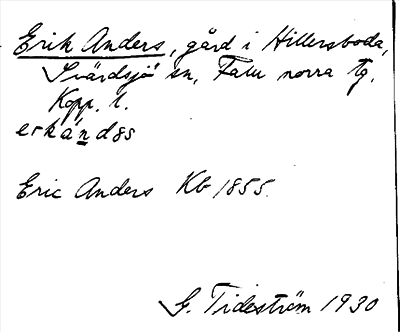 Erik Anders, gård i Hillersboda,
Svärdsjö sn, Falu norra tg,
Kopp. l.
erkánd8s
Eric Anders Kb 1855.
G. Tideström 1930